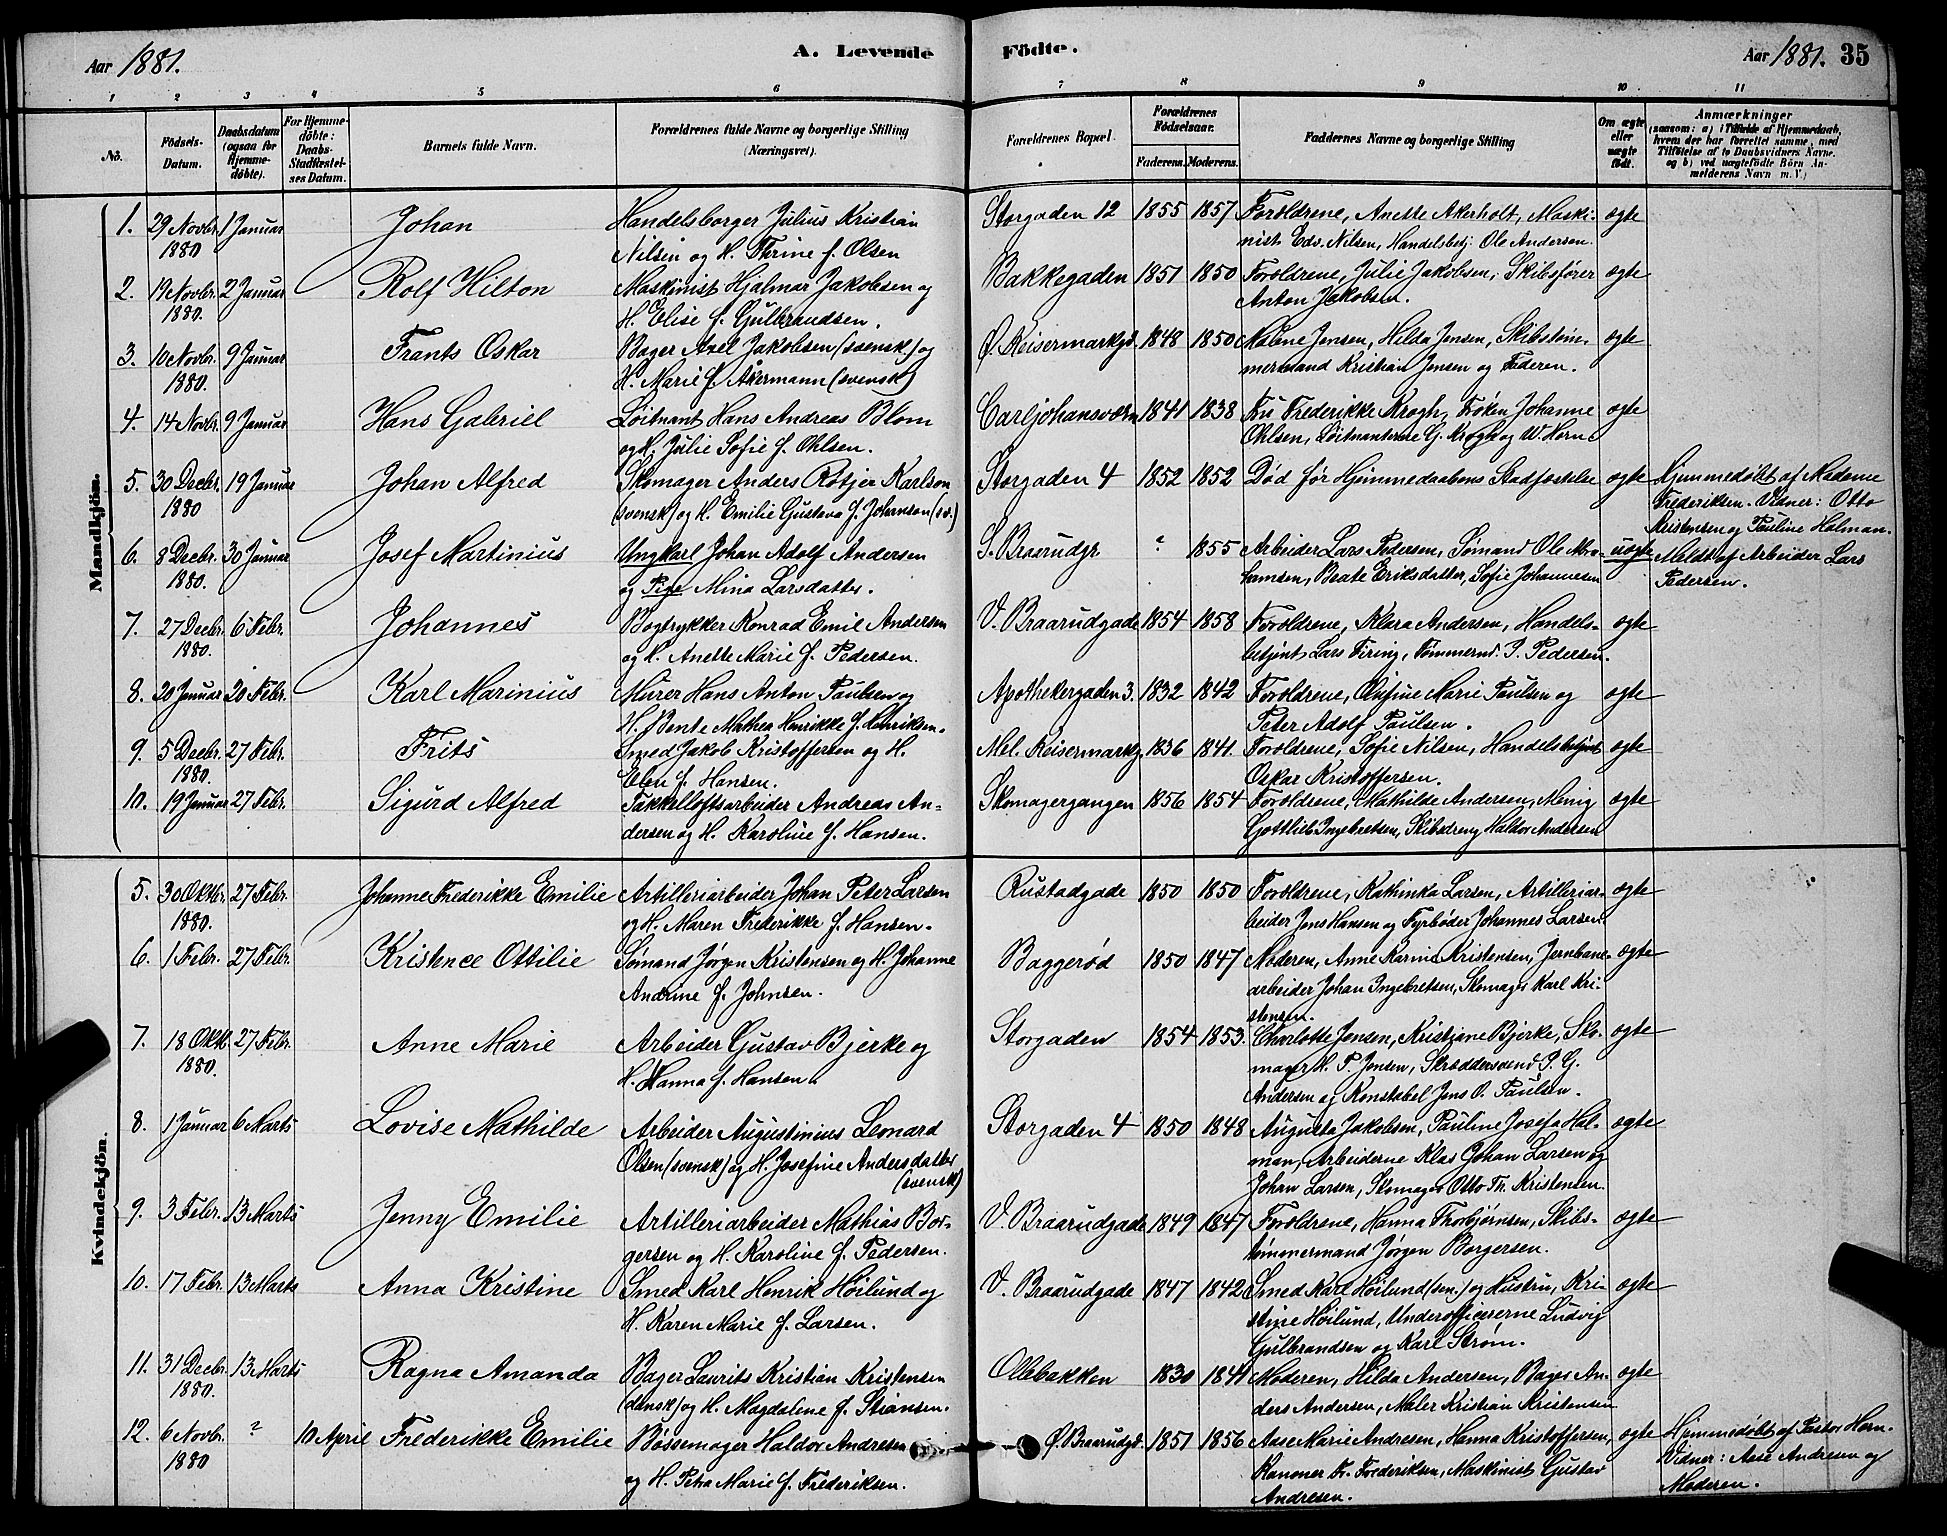 Aar 1881. A. Levende Födte. Aar 1881. 35
1 2 3 4 5 6 7 8 9 10 11
No. Födsels-Datum. Daabsdatum (ogsaa for Hjemmedöbte). For Hjemmedöbte: Daabs-Stadfæstelses Datum. Barnets fulde Navn. Forældrenes fulde Navne og borgerlige Stilling (Næringsvei). Forældrenes Bopæl. Forældrenes Födselsaar. Faderens. Moderens. Faddernes Navne og borgerlige Stilling Om ægte eller uægte födt. Anmærkninger (saasom: a) i Tilfælde af Hjemmedaab, hvem der har forrettet samme, med Tilföielse af to Daabsvidners Navne, og b) ved uægtefödte Börn Anmelderens Navn m. V.)
Mandkjön.
1. 29 Novbr. 1 Januar Johan Handelsborger Julius Kristian Storgaden 12 1855 1857 Foroldrene, Anette Akerholt, Maski- ægte
1880 Nilsen og H. Thrine f. Olsen nist Edv. Nilsen, Handelsbetj. Ole Andersen.
2. 19 Novbr. 2 Januar Rolf Hilton Maskinist Hjalmar Jakobsen og Bakkegaden 1851 1850 Foroldrene, Julie Jakobsen, Skibsfører ægte
1880. H. Elise f. Gulbrandsen. Anton Jakobsen.
3. 10 Novbr. 9 Januar Frants Oskar Bager Axel Jakobsen (svensk) og Ø. Keisermarkgd. 1848 1850 Malene Jensen, Hilda Jensen, Skibstøm- ægte
1880. H. Marie f. Åkermann (svensk) mermand Kristian Jensen og Faderen.
4. 14 Novbr. 9 Januar Hans Gabriel Løitnant Hans Andreas Blom Carljohansværn 1841 1838 Fru Frederikke Krogh, Frøken Johanne ægte
og H. Julie Sofie f. Ohlsen. Ohlsen, Løitnanterne G. Krogh og W. Horn
5. 30 Decbr. 19 Januar Johan Alfred Skomager Anders Røtjer Karlson Storgaden 4 1852 1852 Død før Hjemmedaabens Stadfæstelse ægte Hjemmedøbt af Madame
1880 (svensk) og H. Emilie Gustava f. Johanson (sv.) Frederiksen. Vidner: Otto
Kristensen og Pauline Halman.
6. 8 Decbr. 30 Januar Josef Martinius Ungkarl Johan Adolf Andersen S. Braarudgr. ? 1855 Arbeider Lars Pedersen, Sømand Ole Abra- uægte Meldt af Arbeider Lars
1880. og Pige Mina Larsdatter. hamsen, Beate Eriksdatter, Sofie Johannesen Pedersen.
7. 27 Decbr. 6 Febr. Johannes Bogtrykker Konrad Emil Andersen V. Braarudgade 1854 1858 Foroldrene, Klara Andersen, Handels- ægte
1880. og H. Anette Marie f. Pedersen. betjent Lars Firing, Tømmermd. P. Pedersen.
8. 20 Januar 20 Febr. Karl Marinius Murer Hans Anton Paulsen og Apothekergaden 3. 1832 1842 Foroldrene, Olufine Marie Paulsen og ægte
H. Bente Mathea Henrikke f. Henriksen. Peter Adolf Paulsen.
9. 5 Decbr. 27 Febr. Frits Smed Jakob Kristoffersen og H. Mel. Keisermarkg. 1836 1841 Foroldrene, Sofie Nilsen, Handelsbetjent ægte
1880. Elen f. Hansen. Oskar Kristoffersen.
10. 19 Januar 27 Febr. Sigurd Alfred Takkelloftsarbeider Andreas An- Skomagergangen 1856 1854 Foroldrene, Mathilde Andersen, Menig ægte
dersen og H. Karoline f. Hansen. Gottlieb Ingebretsen, Skibsdreng Haldor Andersen
Kvindekjön.
5. 30 Oktbr. 27 Febr. Johanne Frederikke Emilie Artilleriarbeider Johan Peter Larsen Rustadgade 1850 1850 Foroldrene, Kathinka Larsen, Artilleriar- ægte
1880. og H. Maren Frederikke f. Hansen. beider Jens Hansen og Fyrbøder Johannes Larsen
6. 1 Febr. 27 Febr. Kristence Ottilie Sømand Jørgen Kristensen og H. Johanne Baggerød 1850 1847 Moderen, Anne Karine Kristensen, Jernbane- ægte
Andrine f. Johnsen. arbeider Johan Ingebretsen, Skomager Karl Kri-
stensen.
7. 18 Oktbr. 27 Febr. Anne Marie Arbeider Gustav Bjerke og Storgaden 1854 1853. Charlotte Jensen, Kristiane Bjerke, Sko- ægte
1880. H. Hanna f. Hansen. mager H. P. Jensen, Skræddersvend P. G.
Andersen og Konstabel Jens O. Paulsen.
8. 1 Januar 6 Marts Lovise Mathilde Arbeider Augustinius Leonard Storgaden 4 1850 1848 Augusta Jakobsen, Pauline Josefa Hal- ægte
Olsen (svensk) og H. Josefine Andersdatter man, Arbeiderne Klas Johan Larsen og
(svensk) Johan Larsen, Skomager Otto Th. Kristensen.
9. 3 Febr. 13 Marts Jenny Emilie Artilleriarbeider Mathias Bor- V. Braarudgade 1849 1847 Foroldrene, Hanna Thorbjørnsen, Skibs- ægte
gersen og H. Karoline f. Pedersen. tømmermand Jørgen Borgersen.
10. 17 Febr. 13 Marts Anna Kristine Smed Karl Henrik Høilund og V. Braarudgade 1847 1842 Smed Karl Høilund (sen.) og Hustru, Kri- ægte
H. Karen Marie f. Larsen. stine Høilund, Underofficererne Ludvig
Gulbrandsen og Karl Strøm.
11. 31 Decbr. 13 Marts Ragna Amanda Bager Laurits Kristian Kristensen Ollebakken 1830 1841 Moderen, Hilda Andersen, Bager An- ægte
1880. (dansk) og H. Magdalene f. Stiansen. ders Andersen, Maler Kristian Kristensen
12. 6 Novbr. ? 10 April Frederikke Emilie Bøssemager Haldor Andresen Ø. Braarudgd. 1851 1856 Aase Marie Andresen, Hanna Kristoffersen, ægte Hjemmedøbt af Pastor Horn.
1880 og H. Petra Marie f. Frederiksen. Kanoner Fr. Frederiksen, Maskinist Gustav Vidner: Aase Andresen og
Andresen. Moderen.